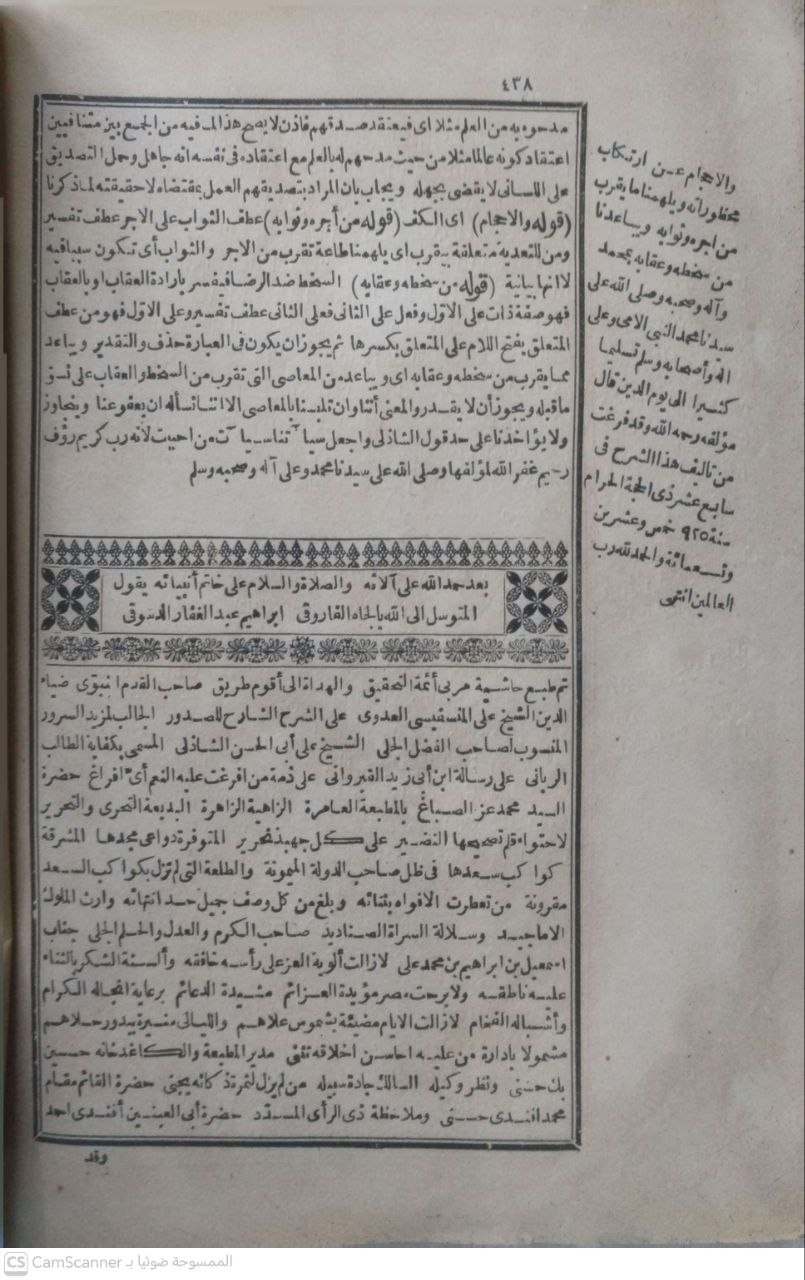 ٤٣٨
مدحوه به من العلم مثلا اى فيعتقد صدقهم فاذن لا يصح هذا لما فيه من الجمع بين متنافيين
اعتقاد كونه عالما مثلا من حيث مدحهم له بالعلم مع اعتقاده فى نفسه انه جاهل وحمل التصديق
على اللسانى لا يقضى بجهله ويجاب بان المراد بتصديقهم العمل بمقتضاه لا حقيقته لما ذكرنا
(قوله والاحجام) اى الكف (قوله من أجره وثوابه) عطف الثواب على الاجر عطف تفسير
ومن للتعدية متعلقة بيقرب اى يلهمنا طاعة تقرب من الاجر والثواب أى تكون سببا فيه
لا انها بيانية (قوله من سخطه وعقابه) السخط ضد الرضا فيفسر بارادة العقاب او بالعقاب
فهو صفة ذات على الاول وفعل على الثانى فعلى الثانى عطف تفسير وعلى الاول فهو من عطف
المتعلق بفتح اللام على المتعلق بكسرها ثم يجوز ان يكون فى العبارة حذف والتقدير ويباعد
مما يقرب من سخطه وعقابه اى ويباعد من المعاصى التى تقرب من السخط والعقاب على نسق
ما قبله ويجوز أن لا يقدر والمعنى أننا وان تلبسنا بالمعاصى الا اننا نسأله ان يعفو عنا ويتجاوز
ولا يؤاخذنا على حد قول الشاذلى واجعل سيآتنا سيآت من احببت لأنه رب كريم رؤف
رحيم غفر الله لمؤلفها وصلى الله على سيدنا محمد وعلى آله وصحبه وسلم
والاحجام عن ارتكاب
محظوراته ويلهمنا ما يقرب
من اجره وثوابه ويباعدنا
من سخطه وعقابه بمحمد
وآله وصحبه وصلى الله على
سيدنا محمد النبى الامى وعلى
اله وأصحابه وسلم تسليما
كثيرا الى يوم الدين قال
مؤلفه رحمه الله وقد فرغت
من تاليف هذا الشرح فى
سابع عشر ذى الحجة الحرام
سنة ٩٢٥ خمس وعشرين
وتسعمائة والحمد لله رب
العالمين انتهى
بعد حمد الله على آلائه والصلاة والسلام على خاتم أنبيائه يقول
المتوسل الى الله بالجاه الفاروقى ابراهيم عبد الغفار الدسوقى
تم طبع حاشية مربى أئمة التحقيق والهداة الى أقوم طريق صاحب القدم النبوى ضياء
الدين الشيخ على المنسفيسى العدوى على الشرح الشارح للصدور الجالب لمزيد السرور
المنسوب لصاحب الفضل الجلى الشيخ على أبى الحسن الشاذلى المسمى بكفاية الطالب
الربانى على رسالة ابن أبى زيد القيروانى على ذمة من افرغت عليه النعم أى افراغ حضرة
السيد محمد عز الصباغ بالمطبعة العامرة الزاهية الزاهرة البديعة التحرى والتحرير
لاحتواء قلم تصحيحها النضير على كل جهبذ نحرير المتوفرة دواعى مجدها المشرقة
كواكب سعدها فى ظل صاحب الدولة الميمونة والطلعة التى لم تزل بكواكب السعد
مقرونة من تعطرت الافواه بثنائه وبلغ من كل وصف جميل حد انتهائه وارث الملوك
الاماجيد وسلالة السراة الصناديد صاحب الكرم والعدل والحلم الجلى جناب
اسمعيل بن ابراهيم بن محمد على لا زالت ألوية العز على رأسه خافقه وألسنة الشكر بالثناء
عليه ناطقه ولا برحت مصر مؤيدة العزائم مشيدة الدعائم برعاية انجاله الكرام
وأشباله الفخام لا زالت الايام مضيئة بشموس علاهم والليالى منيرة ببدور حلاهم
مشمولا بادارة من عليه احاسن اخلاقه تثنى مدير المطبعة والكاغدخانه حسين
بك حسنى ونظر وكيله السالك جادة سبيله من لم يزل لثمرة ذكائه يجنى حضرة القائم مقام
محمد افندى حسنى وملاحظة ذى الرأى المسدد حضرة أبى العينين أفندى احمد
وقد
الممسوحة ضوئيا بـ CamScanner
CS